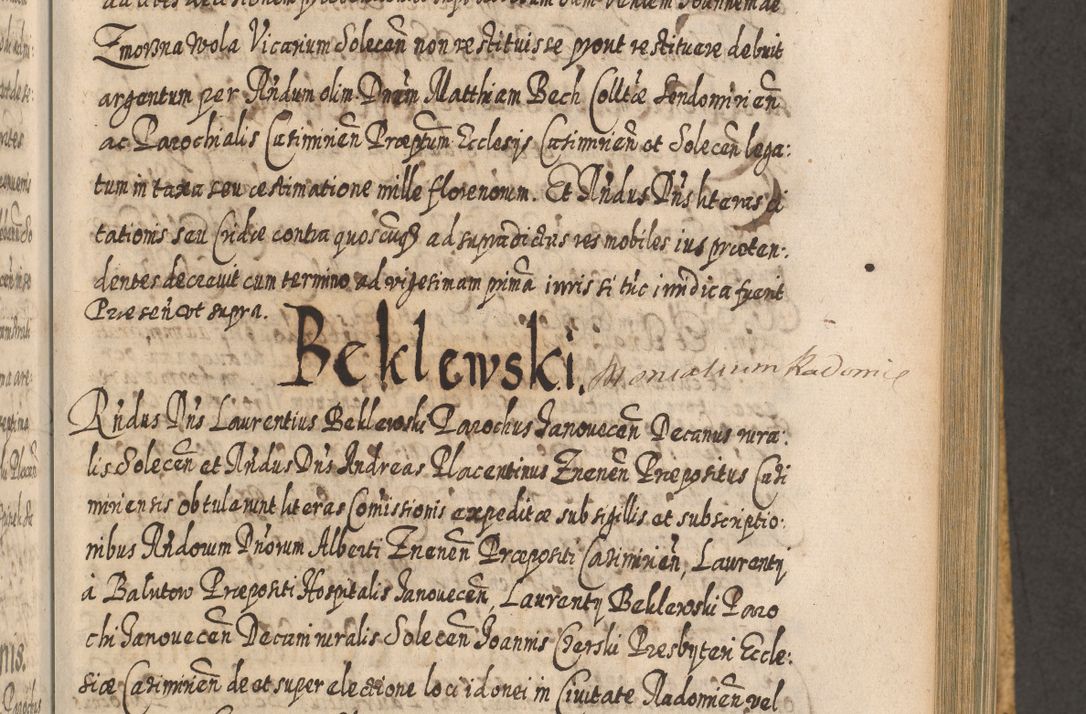 Zmorzna Wola Vicarium Solecen̄ non restituisse prout restituere debuit
argentum per Rn̄dum olim Dnūm Matthiam Bech Colltæ Sendomirien̄
ac Parochialis Casimirien̄ Præptum Ecclesijs Casimirien̄ et Solecen̄ lega:
tum in taxa seu æstimatione mille florenorum. Et Rn̄dus Dn̄s literas ci
tationis seu Cridæ contra quoscūq₃ ad supradictas res mobiles ius præten:
dentes decrevit cum termino ad vigesimam primā iuris si tūc iuridica fuerit
Præsen̄ ut supra.
Beklewski.
Monialium Radomie
Rn̄dus Dn̄s Laurentius Beklewski Parochus Janovecen̄ Decanus rura:
lis Solecen̄ et Rn̄dus Dn̄s Andreas Placentinus Znenen̄ Præpositus Casi
miriensis obtulerunt literas Comissionis expeditæ sub sigillis et subscriptio:
nibus Rn̄dorum Dn̄orum Alberti Znenen̄ Præpositi Casimirien̄, Laurentij
à Balutow Præpositi Hospitalis Janovecen̄, Laurentij Beklewski Paro
chi Janovecen̄ Decani ruralis Solecen̄ Joannis Czerski Presbyteri Eccle:
siæ Casimirien̄ de et super electione loci idonei in Civitate Radomien̄ vel